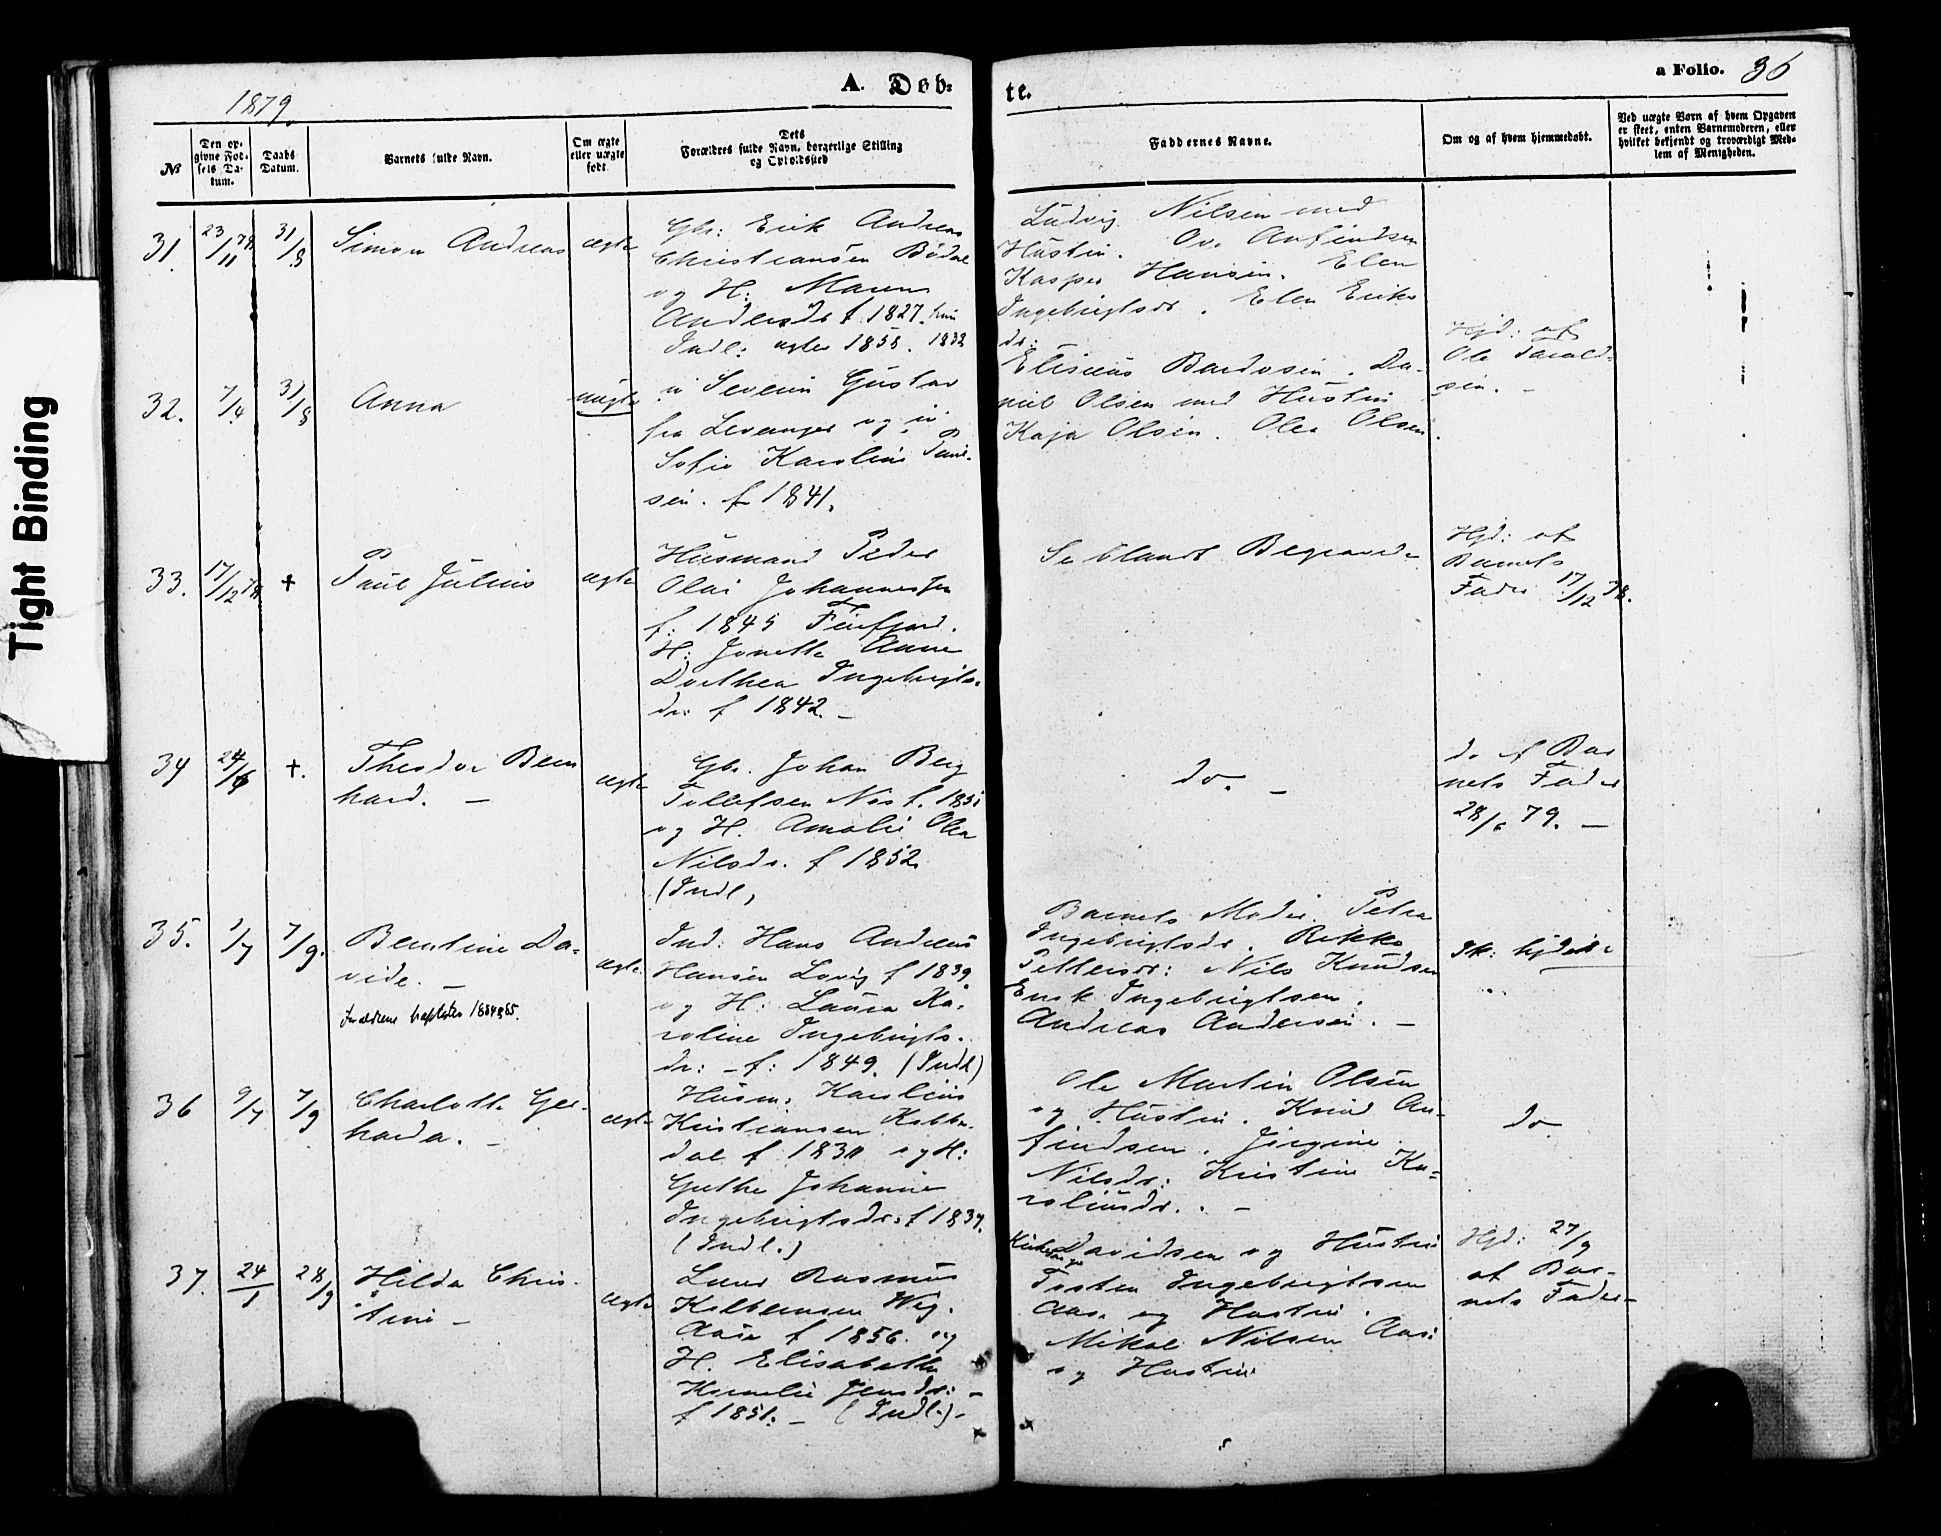 Tight Binding
1879.
A. Døb-
te.
a Folio. 36
№
Den op-
givne Fød-
sels Da-
tum.
Daabs
Datum.
Barnets fulde Navn.
Om ægte
eller uægte
født.
Dets
Forældres fulde Navn, borgerlige Stilling
og Opholdssted
Faddernes Navne.
Om og af hvem hjemmedøbt.
Ved uægte Børn af hvem Opgaven
er skeet, enten Barnemoderen, eller
hvilket bekjendt og troværdigt Med-
lem af Menigheden.
31.
23/11 78
31/8
Simon Andreas
ægte
Gbr: Erik Andreas
Christiansen Bødal
og H: Maren
Andersdr f. 1827. hun
Indl: ægtev 1858. 1832
Ludvig Nilsen med
Hustru. Ove Anfindsen
Kasper Hansen. Elen
Ingebrigtsdr. Elen Eriks
dr:
32.
7/4
31/8
Anna
uægte
u Severin Gustav
fra Levanger og
Sofie Karoline
sen. f 1841.
Eliseus Bardosen. Da-
niel Olsen med Hustru
Kaja Olsen. Olea Olsen.
Hjd: af
Ole Tarald-
sen. -
33.
17/12 78
+
Paul Julius
ægte
Husmand Peder
Olai Johannessen
f: 1845 Finfjord.
H: Jonette Anne
Dorthea Ingebrigts-
dr: f 1842. -
Se blandt Begravede
Hjd: af
Barnets
Fader 17/12 78.
34
24/6
+.
Theodor Bern
hard. -
ægte
Gbr. Johan Berg
Tollefsen Nøs f. 1851
og H. Amalie Olea
Nilsdr. f 1852
(Indl)
do. -
do af Bar
nets Fader
28/6 79. -
35.
1/7
7/9.
Bentine Da-
vide. -
Forældrene
1864&65.
ægte
Ind: Hans Andreas
Hansen Lovig f 1839.
og H: Laura Ka-
roline Ingebrigts-
dr: - f: 1849. (Indl)
Barnets Moder. Petra
Ingebrigtsdr. Rikke
Pettersdr: Nils Knudsen
Erik Ingebrigtsen.
Andreas Andersen. -
Ik: hjdøbt
36
9/7
7/9
Charlotte Ger-
harda. -
ægte
Husm: Karelius
Kristiansen Kobbe
dal f 1830 og H:
Grethe Johanne
Ingebrigtsdr: f 1837.
(Indl.)
Ole Martin Olsen
og Hustru. Knud An-
findsen. Jørgine
Nilsdr: Kristine Ka-
roliusdr. -
do
37.
24/1
28/9
Hilda Chris-
tine -
ægte
Rasmus
Kolbensen Wig.
Aase f 1856. og
H. Elisabeth
Kornelie Jensdr: -
f 1851. - (Indl.)-
Davidsen og Hustru
Torsten Ingebrigtsen
Aas. og Hustru.
Mikal Nilsen Aas:
og Hustru
Hjd: 27/9
af Bar-
nets Fader -